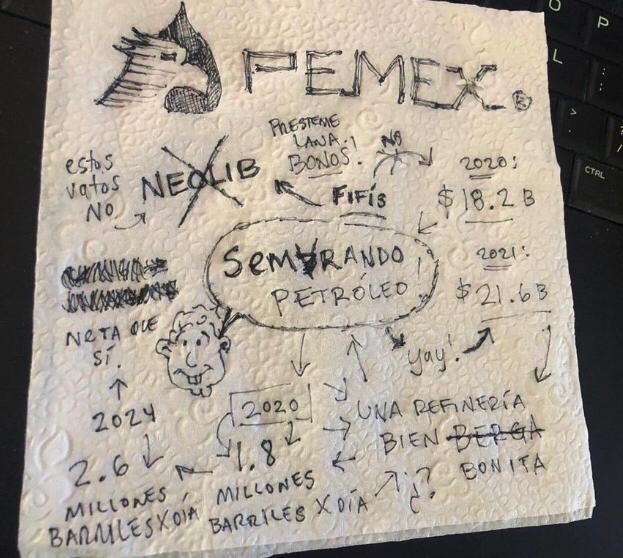 PEMEX®
PRESTEME
LANA.
BONOS!
NO
estos
vatos
NO
NEOLIB
FIFÍS
2020:
$18.2 B
2021:
$21.6 B
SEMBRANDO
PETRÓLEO!
NETA QUE
SÍ.
yay!
2024
2020
UNA REFINERÍA
BIEN BERGA
BONITA
2.6
MILLONES
BARRILES X DÍA
1.8
MILLONES
BARRILES X DÍA
¿?
CTRL
O
P
L